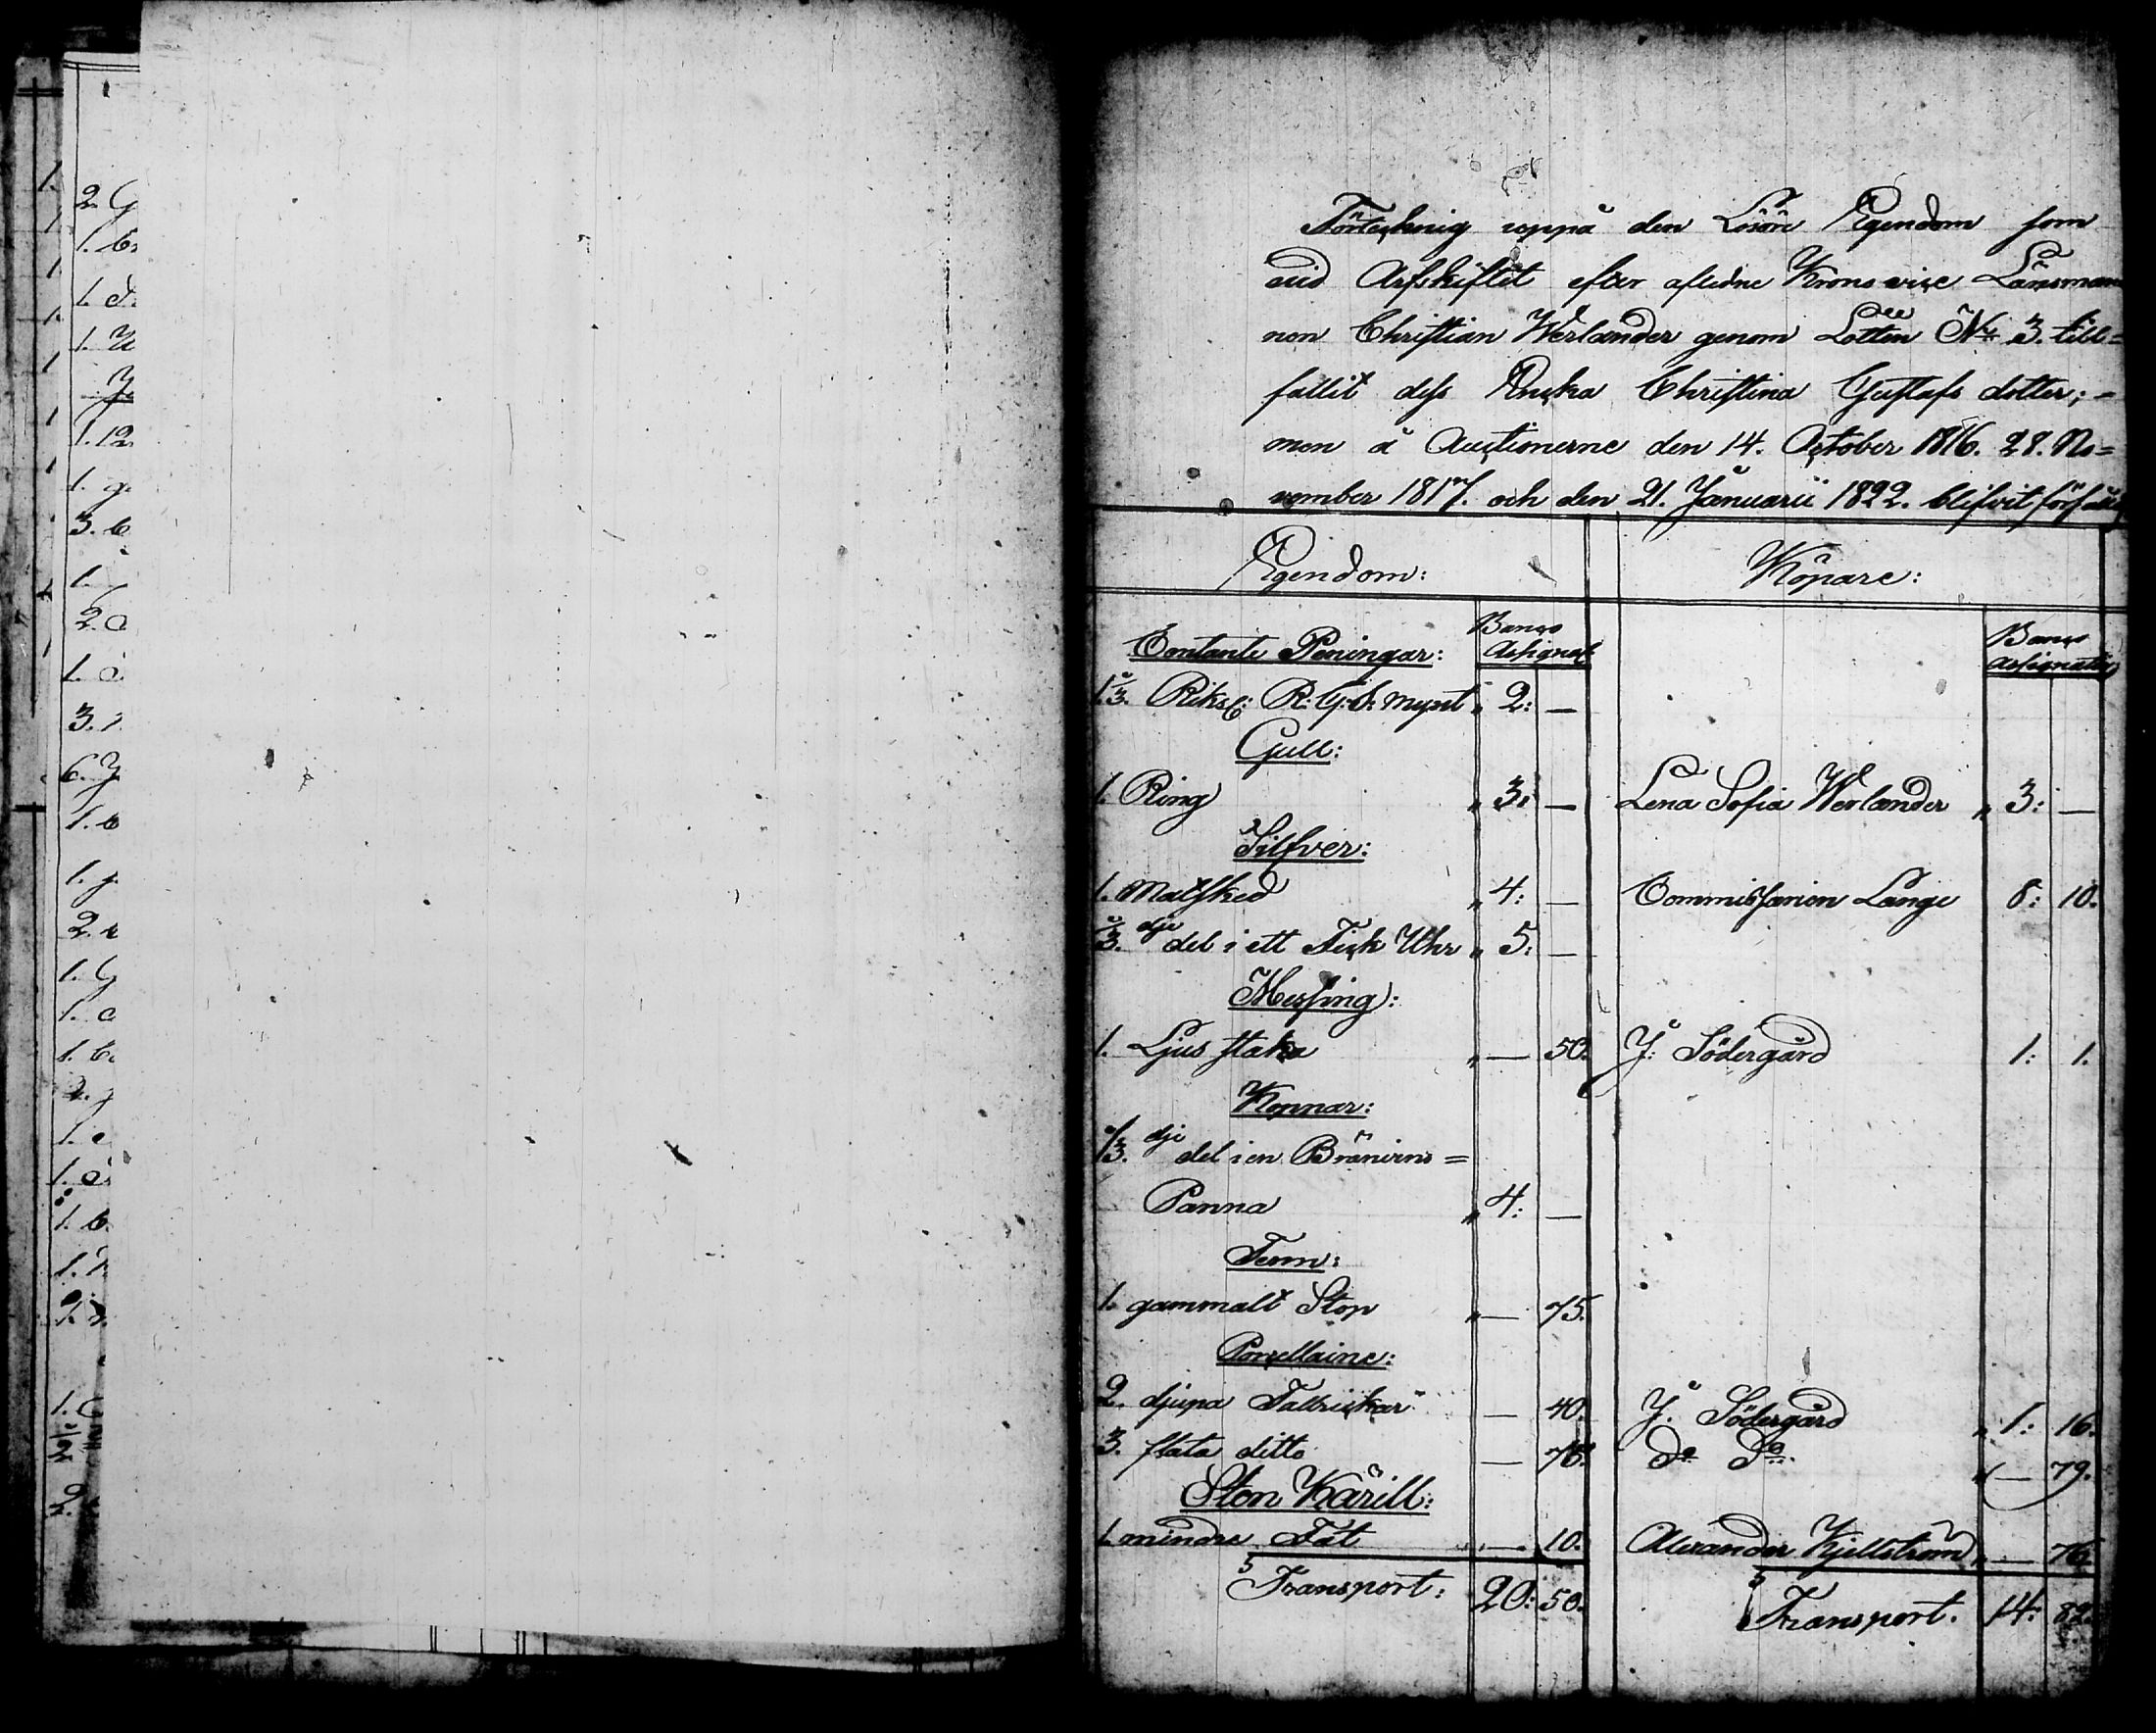 Förteckning uppå den Lösöre Egendom som
vid Arfskiftet efter afledne Krono vice Länsman
nen Christian Werlander genom Lotten No 3. till=
fallit dess Encka Christina Gustafs dotter; =
men å Auctionerne den 14. October 1816. 28. No=
vember 1817. och den 21. Januarii 1822. blifvit försåld
Egendom: Köpare:
Contante Peningar: Banco Assignat: Banco Assignatio
1/3. Riksd: R: G: S: mynt " 2: —
Gull:
1. Ring " 3: — Lena Sofia Werlander " 3: —
Silfver:
1. Matsked " 4: — Commissarien Lange 8: 10.
1/3. dje del i ett Fick Uhr " 5: —
Messing:
1. Ljus staka " — 50. J: Södergård 1: 1.
Koppar:
1/3. dje del i en Bränvins =
Panna " 4: —
Tenn:
1. gammalt Stop " — 75.
Porcellaine:
2. djupa Tallrickar — 40. J. Södergård " 1: 16.
3. flata ditto — 75. Do Do " — 79.
Sten Kärill:
1. mindre Fat " — 10. Alexander Kjellström " — 76.
Transport: 20: 50. Transport. 14: 82.